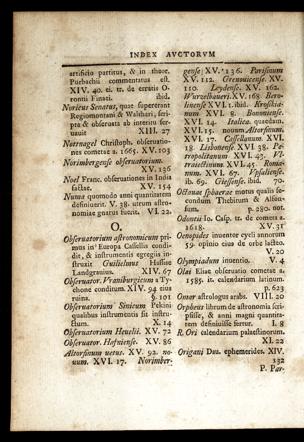 INDEX AVCTORVM
artificio partitus, & in theor.
Purbachii commentatus est.
XIV. 40. ei. tr. de erratis O-
rontii Finati. ibid.
Noricus Senatus, quae superarent
Regiomontani & Waltheri, scri-
pta & observata ab interitu ser-
vauit XIII. 27
Notnagel Christoph. observatio-
nes cometae a. 1665. XV. 103
Norimbergense observatorium.
XV. 136
Noel Franc. observationes in India
factae. XV. 154
Numa quomodo anni quantitatem
definiuerit. V. 38. utrum astro-
nomiae gnatus fuerit. VI. 22.
O.
Observatorium astronomicum pri-
mus in Europa Cassellis condi-
dit, & instrumentis egregiis in-
struxit Guilielmus Hassiae
Landgrauius. XIV. 67
Observator. Vraniburgicum a Ty-
chone conditum. XIV. 94 eius
ruina. §. 101
Observatorium Sinicum Pekini
qualibus instrumentis sit instru-
ctum. X. 14
Observatorium Hevelii. XV. 72
Observator. Hafniense. XV. 86
Altorfinum uetus. XV. 92. no-
uum. XVI. 17. Norimber-
gense XV. 136. Parisinum
XV. 112. Grenovicense. XV.
110. Leydense. XV. 162.
Wurzelbaueri. XV. 168. Bero-
linense XVI. 1. ibid. Krosikia-
num XVI. 8. Bononiense.
XVI. 14. Italica quaedam.
XVI. 15. nouum Altorfinum.
XVI. 17. Cassellanum XVI.
18. Lisbonense XVI. 38. Pe-
tropolitanum XVI. 43. Vl-
traiectinum. XVI. 45. Roma-
num. XVI. 67. Vpsaliense.
ib. 69. Giessense. ibid. 70.
Octauae sphaerae motus qualis se-
cundum Thebitum & Alfon-
sum. p. 280. not.
Odontii Io. Casp. tr. de cometa a.
1618. XV. 31
Oenopides inuentor cycli annorum
59. opinio eius de orbe lacteo.
V. 20
Olympiadum inuentio. V. 4
Olai Eliae observatio cometae a.
1585. it. calendarium latinum.
p. 623
Omar astrologus arabs. VIII. 20
Orpheus librum de astronomia scri-
psisse, & anni magni quantita-
tem definiuisse fertur. I. 8
R. Ori calendarium palaestinorum.
XI. 22
Origani Dau. ephemerides. XIV.
132
P. Par-